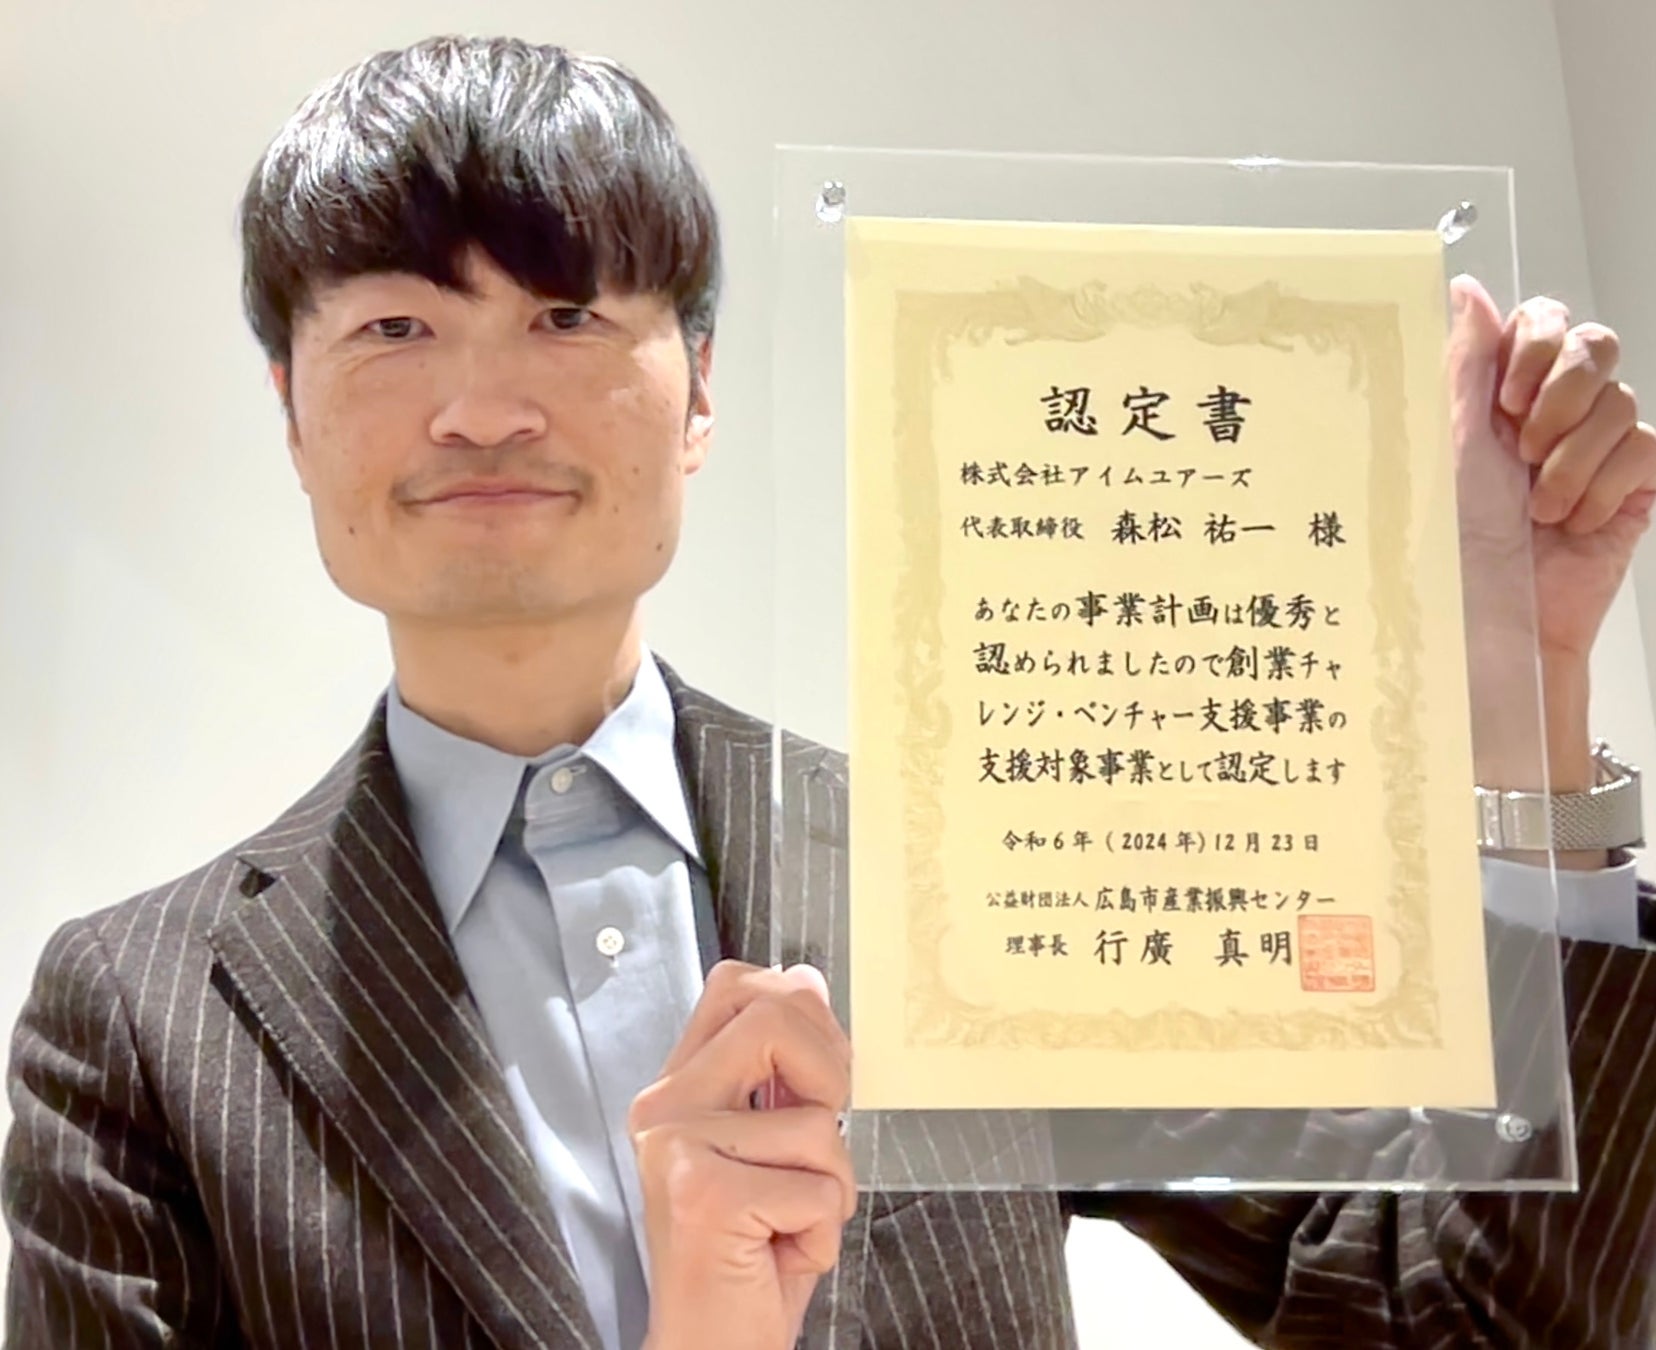 認定書
株式会社アイムユアーズ
代表取締役 森松 祐一 様
あなたの事業計画は優秀と
認められましたので創業チャ
レンジ・ベンチャー支援事業の
支援対象事業として認定します
令和6年(2024年)12月23日
公益財団法人広島市産業振興センター
理事長 行廣 真明